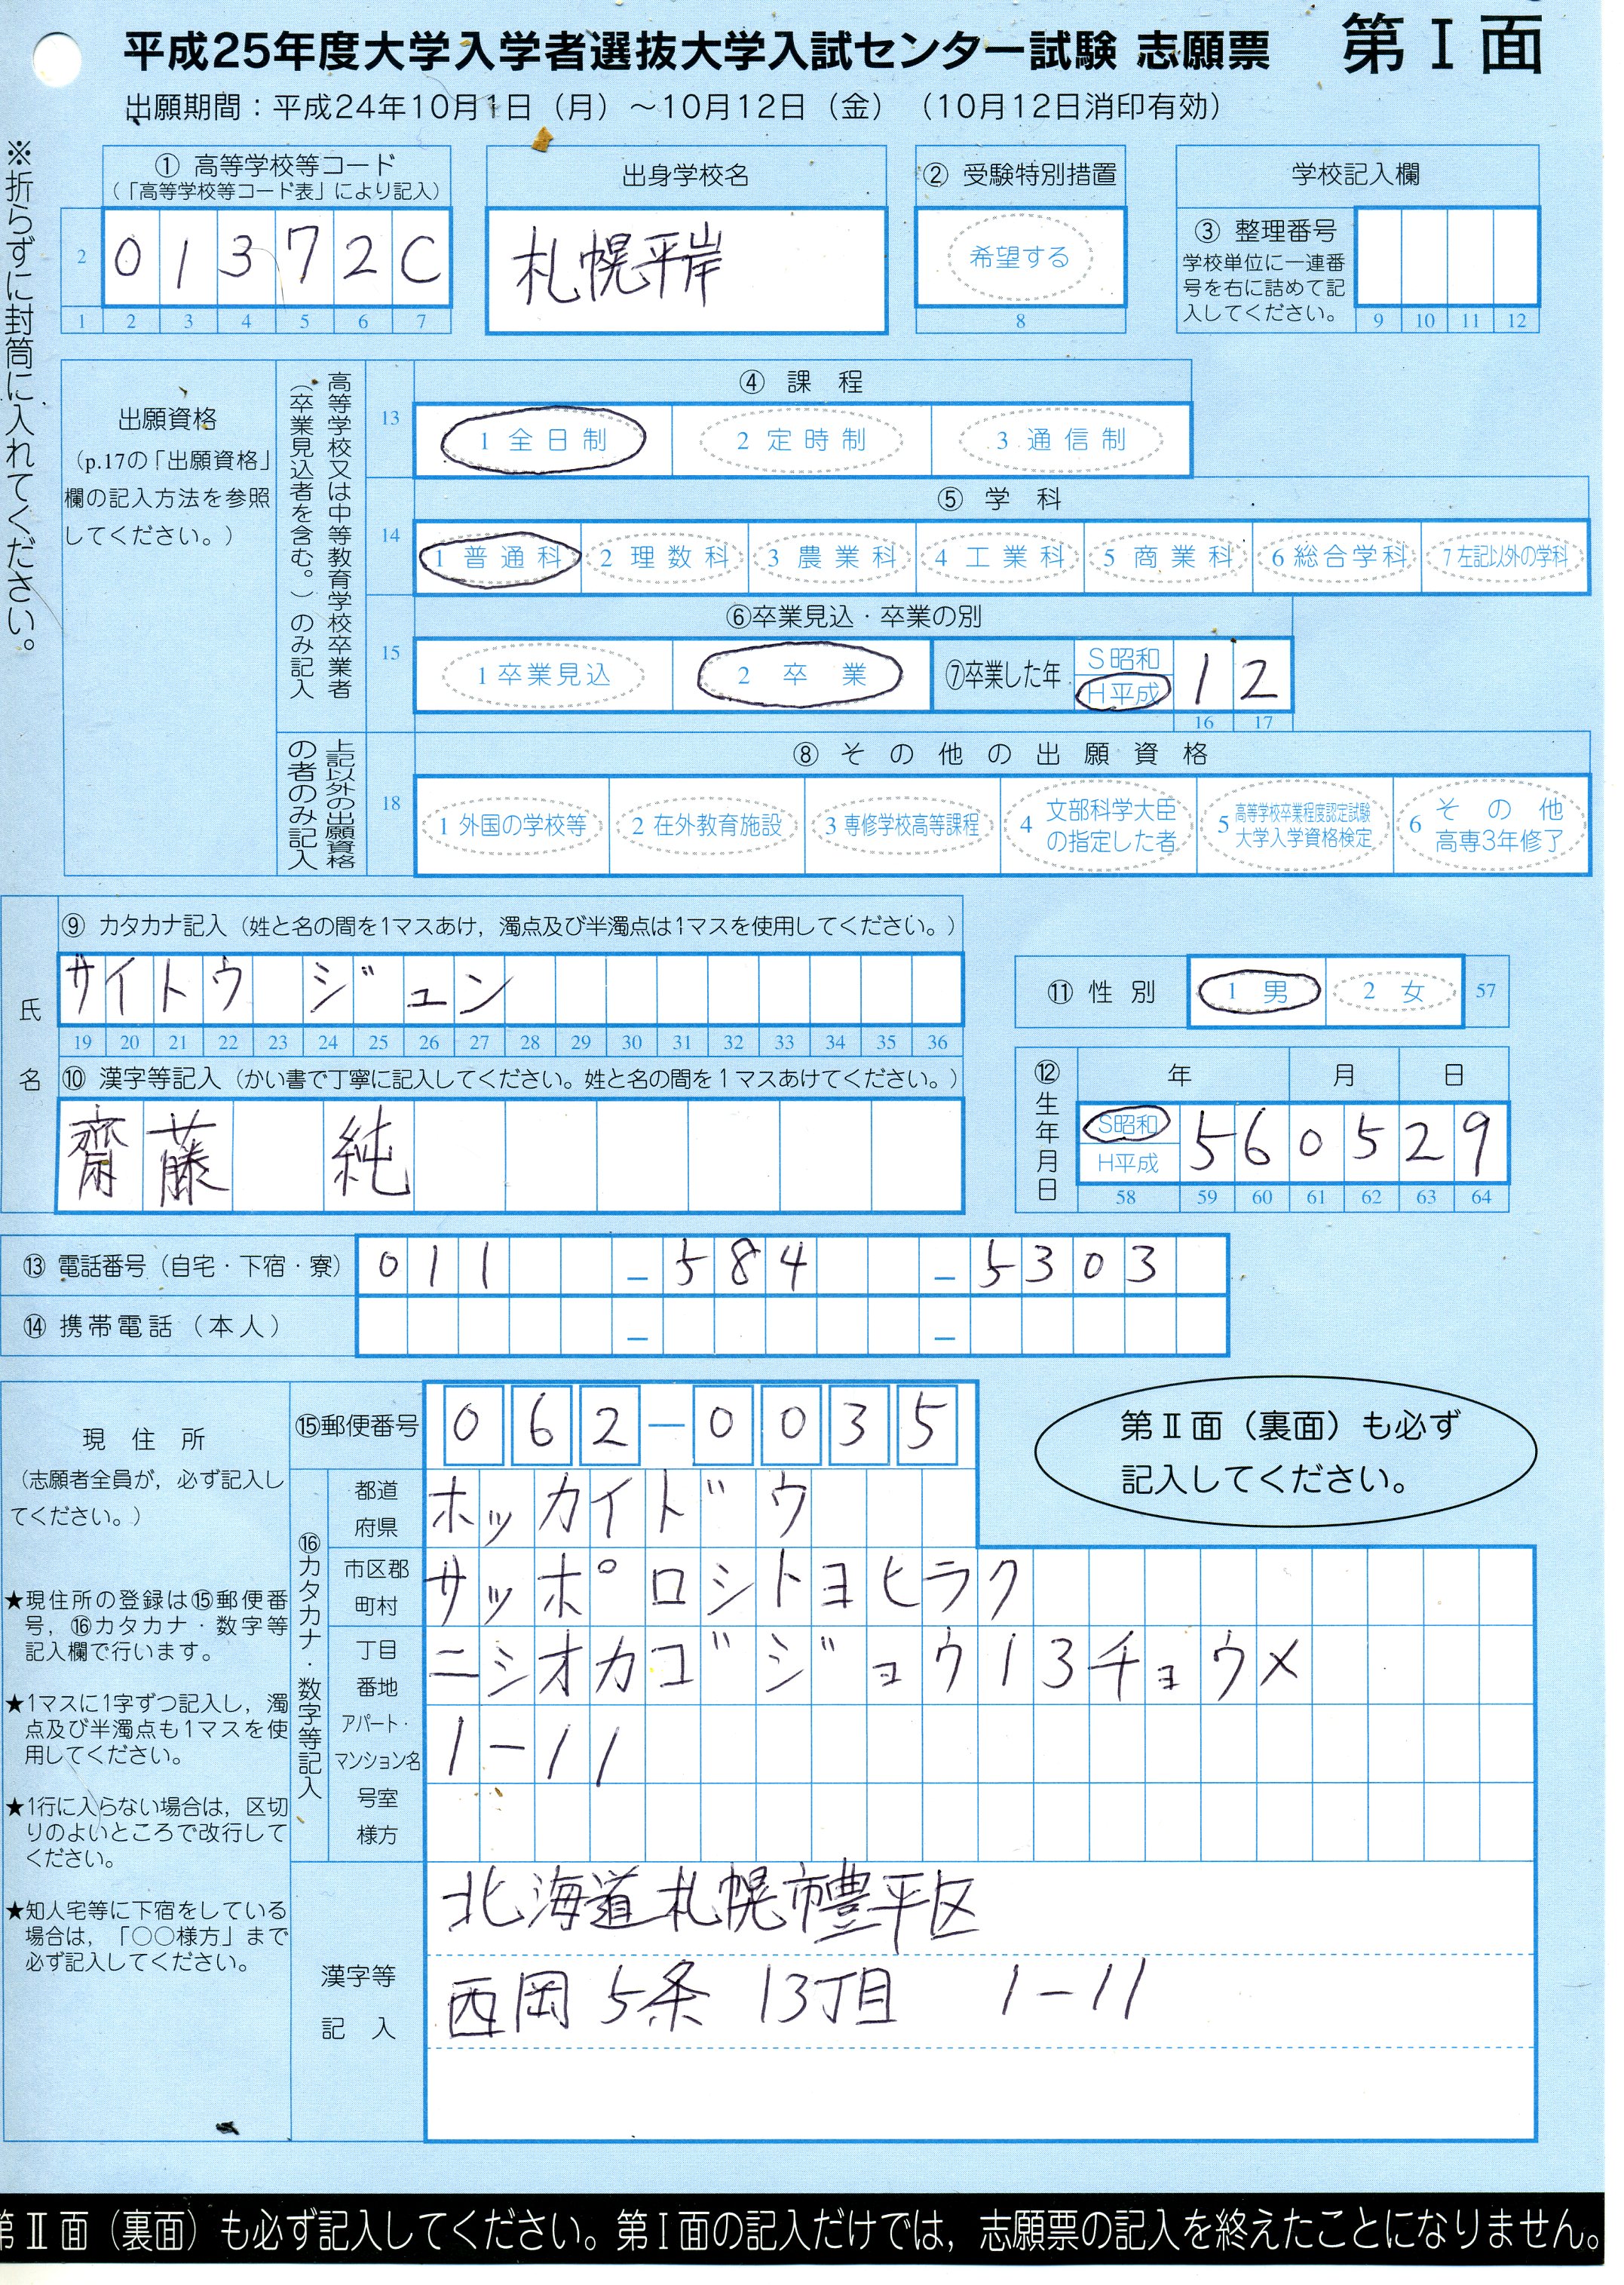 平成25年度大学入学者選抜大学入試センター試験 志願票 第Ⅰ面
出願期間：平成24年10月1日（月）～10月12日（金）（10月12日消印有効）
※折らずに封筒に入れてください。
① 高等学校等コード
（「高等学校等コード表」により記入）
2 01372C
1 2 3 4 5 6 7
出身学校名
札幌平岸
② 受験特別措置
希望する
8
学校記入欄
③ 整理番号
学校単位に一連番
号を右に詰めて記
入してください。
9 10 11 12
出願資格
（p.17の「出願資格」
欄の記入方法を参照
してください。）
高等学校又は中等教育学校卒業者
（卒業見込者を含む。）のみ記入
④ 課 程
13 1 全日制 2 定時制 3 通信制
⑤ 学 科
14 1 普通科 2 理数科 3 農業科 4 工業科 5 商業科 6 総合学科 7 左記以外の学科
⑥卒業見込・卒業の別
15 1 卒業見込 2 卒 業 ⑦卒業した年 S昭和 H平成 12
16 17
上記以外の出願資格
の者のみ記入
⑧ その他の出願資格
18 1 外国の学校等 2 在外教育施設 3 専修学校高等課程 4 文部科学大臣の指定した者 5 高等学校卒業程度認定試験 大学入学資格検定 6 その他 高専3年修了
氏名
⑨ カタカナ記入（姓と名の間を1マスあけ，濁点及び半濁点は1マスを使用してください。）
サイトウ シ゛ュン
19 20 21 22 23 24 25 26 27 28 29 30 31 32 33 34 35 36
⑩ 漢字等記入（かい書で丁寧に記入してください。姓と名の間を1マスあけてください。）
齋藤 純
⑪ 性別 1 男 2 女 57
⑫生年月日
年 月 日
S昭和 H平成 560529
58 59 60 61 62 63 64
⑬ 電話番号（自宅・下宿・寮） 011 － 584 － 5303
⑭ 携帯電話（本人） － －
現住所
（志願者全員が，必ず記入し
てください。）
★現住所の登録は⑮郵便番
号，⑯カタカナ・数字等
記入欄で行います。
★1マスに1字ずつ記入し，濁
点及び半濁点も1マスを使
用してください。
★1行に入らない場合は，区切
りのよいところで改行して
ください。
★知人宅等に下宿をしている
場合は，「〇〇様方」まで
必ず記入してください。
⑮郵便番号 062－0035
第Ⅱ面（裏面）も必ず
記入してください。
⑯カタカナ・数字等記入
都道府県 ホッカイト゛ウ
市区郡町村 サッホ゜ロシトヨヒラク
丁目番地 ニシオカコ゛シ゛ョウ13チョウメ
アパート・マンション名 1－11
号室
様方
漢字等
記 入
北海道札幌市豊平区
西岡5条 13丁目 1－11
第Ⅱ面（裏面）も必ず記入してください。第Ⅰ面の記入だけでは，志願票の記入を終えたことになりません。